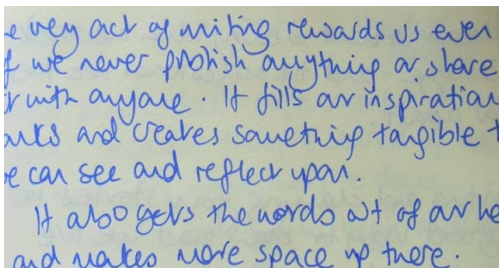 e very act of writing rewards us even
f we never publish anything or share
t with anyone. It fills our inspiration
anks and creates something tangible t
e can see and reflect upon.
It also gets the words out of our he
and makes more space up there.